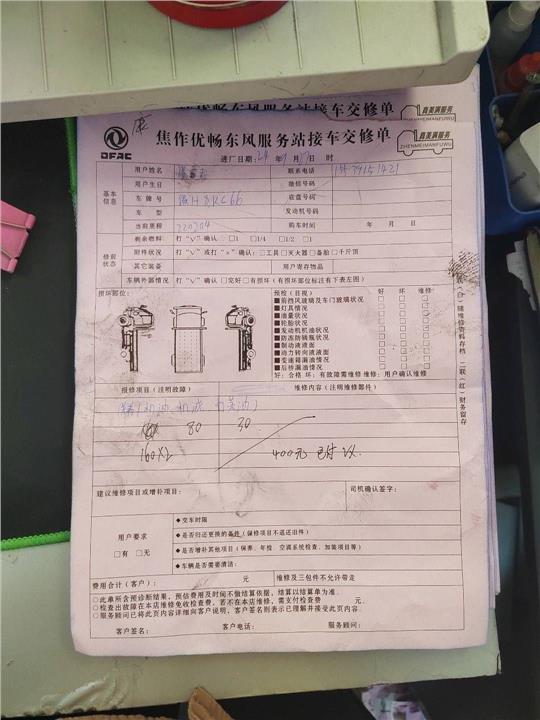 焦作优畅东风服务站接车交修单
真美满服务
ZHENMEIMANFUWU
DFAC
焦作优畅东风服务站接车交修单
进厂日期: 年 月 日 时
基本信息
用户姓名
联系电话
用户生日
微信号码
车牌号
底盘号码
车 型
发动机号码
当前里程 220204
购车时间 年 月 日
修前状况
剩余燃料 打“√”确认 □1 □1/4 □1/2 □1
附件状况 打“√”或打“×”确认: □工具□灭火器□备胎□千斤顶
其它装备
用户寄存物品
车辆外部情况 打“√”确认 □完好□有损坏(有损坏部位标注有下表左图)
损坏部位:
预检(目视) 好 坏 维修
■前挡风玻璃及车门玻璃状况
■灯具情况
■油量状况
■轮胎状况
■发动机机油状况
■防冻防锈瓶状况
■制动液液面
■动力转向液液面
■变速箱漏油情况
■后桥漏油情况
好:合格 坏:有故障需维修 维修:用户确认维修
报修项目(注明故障)
维修内容(注明维修部件)
80 30
160×2
400元 已付
建议维修项目或增补项目:
司机确认签字:
用户要求
□有 □无
◆交车时限
◆是否归还更换的备件(保修项目不退还旧件)
◆是否增补其他项目(保养、年检、空调系统检查、加装项目等)
◆车辆是否需要清洁:
费用合计(客户): 元
维修及三包件不允许带走
○此单所含预诊断结果,预估费用及时间不做结算依据,结算以结算单为准.
○检查出故障在本店维修免收检查费,若不在本店维修,需支付检查费 元.
○服务顾问已将此页内容详细向客户说明,客户签名则表示已理解并接受此页内容.
客户签名: 客户电话: 服务顾问: